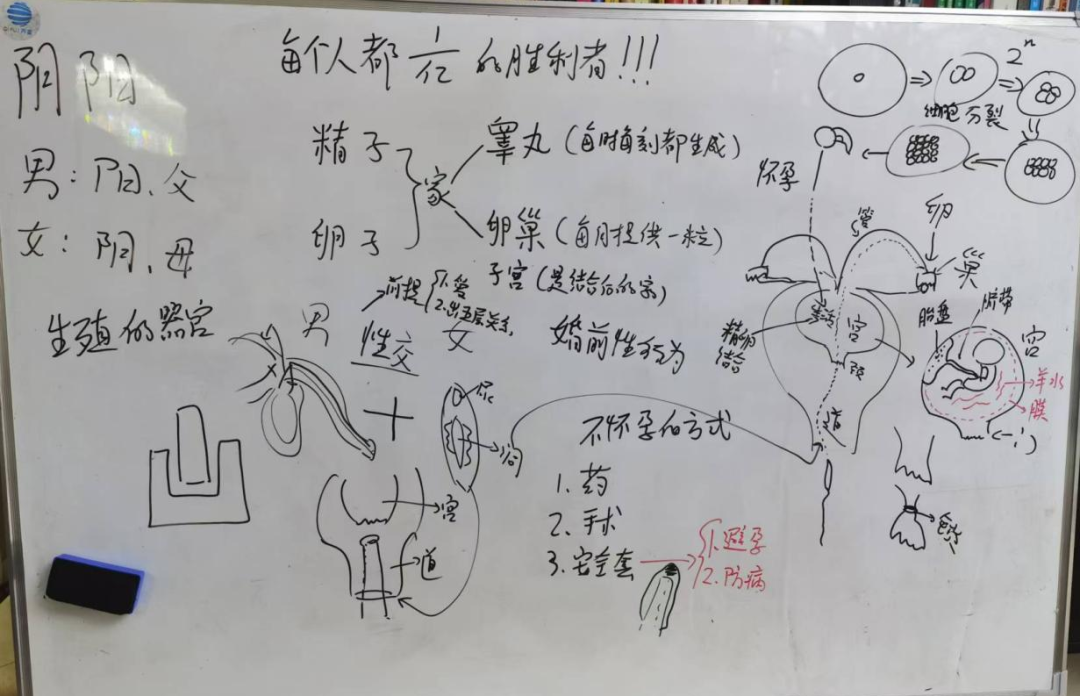 阴阳
每个人都1/亿的胜利者!!!
男:阳、父
女:阴、母
生殖的器官
精子
卵子
家
睾丸(每时每刻都生成)
卵巢(每月提供一粒)
子宫(是结合后的家)
前提
男
性交
女
婚前性行为
宫
道
不怀孕的方式
1.药
2.手术
3.安全套
1.避孕
2.防病
2ⁿ
细胞分裂
怀孕
管
卵
巢
精卵
结合
宫
颈
道
胎盘
脐带
宫
羊水
膜